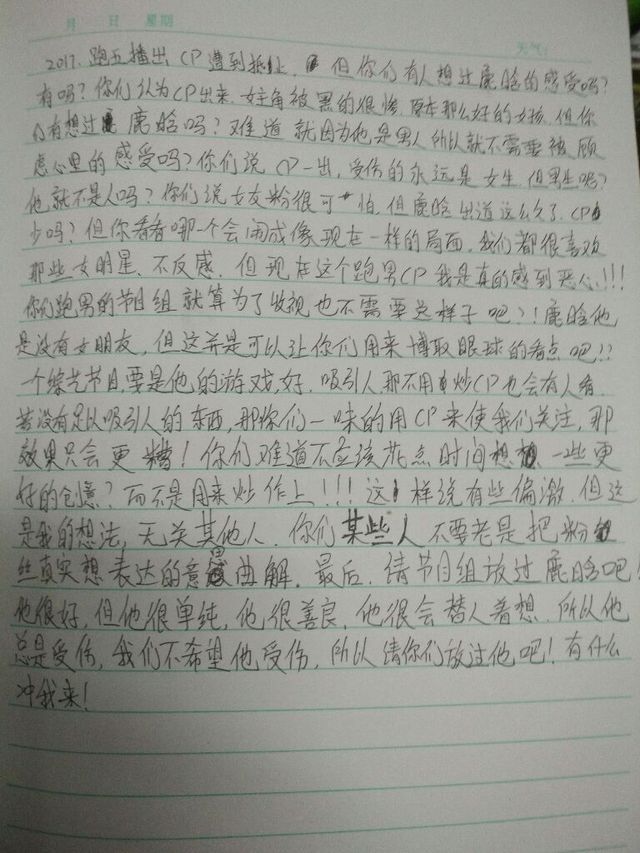 月 日 星期
天气:
2017. 跑五播出 CP 遭到抵制, 但你们有人想过鹿晗的感受吗?
有吗? 你们认为CP出来, 女主角被黑的很惨, 原本那么好的女孩, 但你
们有想过鹿晗吗? 难道就因为他是男人所以就不需要被顾
虑心里的感受吗? 你们说CP一出, 受伤的永远是女生, 但男生呢?
他就不是人吗? 你们说女友粉很可怕, 但鹿晗出道这么久了, CP
少吗? 但你看看哪一个会闹成像现在一样的局面, 我们都很喜欢
那些女明星, 不反感, 但现在这个跑男CP我是真的感到恶心!!!
你们跑男的节目组就算为了收视也不需要这样子吧?! 鹿晗他
是没有女朋友, 但这并是可以让你们用来博取眼球的看点吧!?
一个综艺节目, 要是他的游戏, 好, 吸引人那不用炒CP也会有人看,
若没有足以吸引人的东西, 那你们一味的用CP来使我们关注, 那
效果只会更糟! 你们难道不应该花点时间想想, 一些更
好的创意? 而不是用来炒作上!!! 这样说有些偏激, 但这
是我的想法, 无关其他人, 你们某些人不要老是把粉
丝真实想表达的意思曲解, 最后, 请节目组放过鹿晗吧!
他很好, 但他很单纯, 他很善良, 他很会替人着想, 所以他
总是受伤, 我们不希望他受伤, 所以请你们放过他吧! 有什么
冲我来!